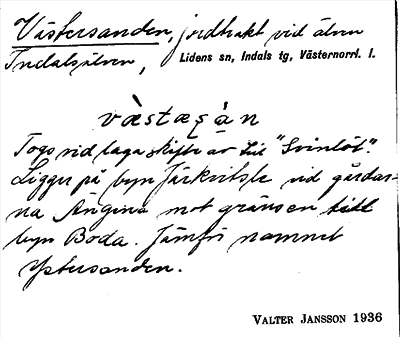 Västersanden, jordtrakt vid älven
Indalsälven, Lidens sn, Indals tg, Västernorrl. l.
västæʂán
Togs vid laga skifte av till "Svinlöt".
Ligger på byn Järkvitsle vid gårdar-
na Ängina mot gränsen till
byn Boda. Jämför namnet
Ystersanden.
VALTER JANSSON 1936